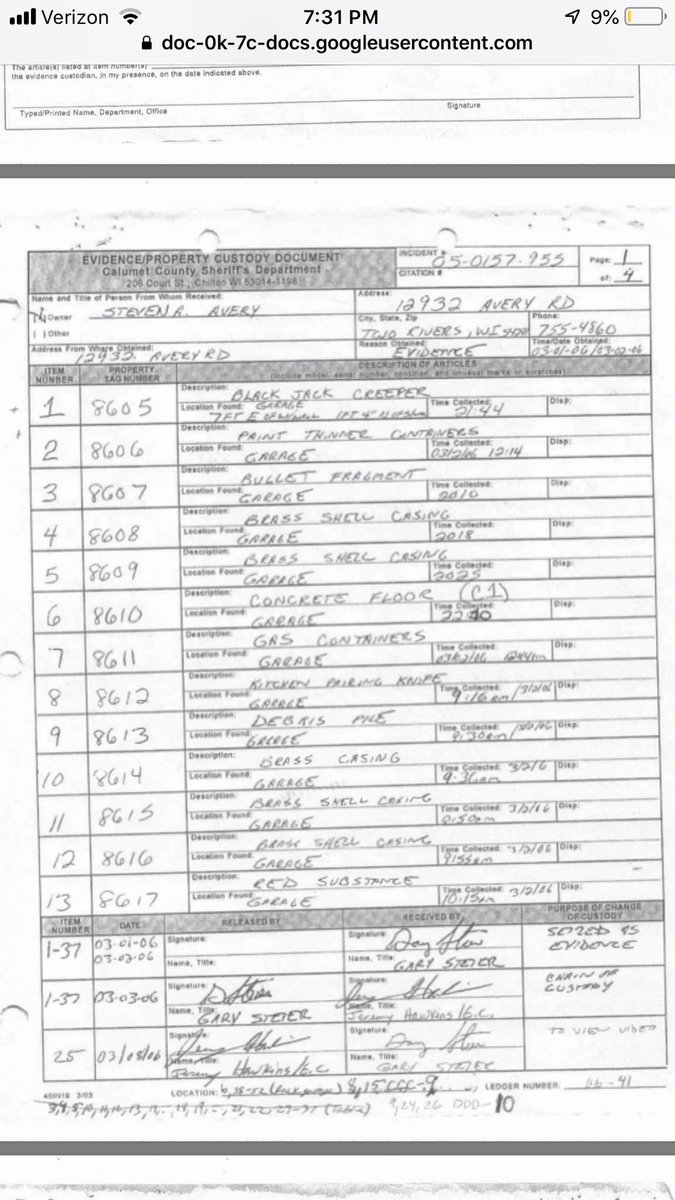 Verizon 7:31 PM 9%
doc-0k-7c-docs.googleusercontent.com
The article(s) listed at item number(s)
the evidence custodian, in my presence, on the date indicated above.
Typed/Printed Name, Department, Office Signature
EVIDENCE/PROPERTY CUSTODY DOCUMENT
Calumet County Sheriff's Department
206 Court St., Chilton WI 53014-1198
INCIDENT # 05-0157-955
CITATION #
Page: 1
of: 4
Name and Title of Person From Whom Received:
Owner STEVEN A. AVERY
Other
Address: 12932 AVERY RD
City, State, Zip
TWO RIVERS, WI 54241
Phone: 755-4860
Address From Where Obtained:
12932 AVERY RD
Reason Obtained:
EVIDENCE
Time/Date Obtained:
03-01-06/03-02-06
ITEM NUMBER PROPERTY TAG NUMBER DESCRIPTION OF ARTICLES
(Include model, serial number, condition, and unusual marks or scratches)
1 8605 Description: BLACK JACK CREEPER
Location Found: GARAGE Time Collected: 21:44 Disp:
2 8606 Description: PAINT THINNER CONTAINERS
Location Found: GARAGE Time Collected: 03/2/06 12:14 Disp:
3 8607 Description: BULLET FRAGMENT
Location Found: GARAGE Time Collected: 2010 Disp:
4 8608 Description: BRASS SHELL CASING
Location Found: GARAGE Time Collected: 2018 Disp:
5 8609 Description: BRASS SHELL CASING
Location Found: GARAGE Time Collected: 2025 Disp:
6 8610 Description: CONCRETE FLOOR (C1)
Location Found: GARAGE Time Collected: Disp:
7 8611 Description: GAS CONTAINERS
Location Found: GARAGE Time Collected: Disp:
8 8612 Description: KITCHEN PAIRING KNIFE
Location Found: GARAGE Time Collected: 9:16am /3/2/06 Disp:
9 8613 Description: DEBRIS PILE
Location Found: GARAGE Time Collected: 9:30am/ 3/2/06 Disp:
10 8614 Description: BRASS CASING
Location Found: GARAGE Time Collected: 3/2/6 9:36am Disp:
11 8615 Description: BRASS SHELL CASING
Location Found: GARAGE Time Collected: 3/2/06 9:50am Disp:
12 8616 Description: BRASS SHELL CASING
Location Found: GARAGE Time Collected: 3/2/06 9:55am Disp:
13 8617 Description: RED SUBSTANCE
Location Found: GARAGE Time Collected: 3/2/06 10:15am Disp:
ITEM NUMBER DATE RELEASED BY RECEIVED BY PURPOSE OF CHANGE OF CUSTODY
1-37 03-01-06 03-02-06 Signature: Signature: SEIZED AS EVIDENCE
Name, Title: Name, Title: GARY STEIER
1-37 03-03-06 Signature: Signature: CHAIN OF CUSTODY
Name, Title: GARY STEIER Name, Title: Jeremy Hawkins/E.C.
25 03/08/06 Signature: Signature: TO VIEW VIDEO
Name, Title: Jeremy Hawkins/E.C. Name, Title: GARY STEIER
LOCATION: LEDGER NUMBER: 06-41
(Table) 9,24,26 DDD-10